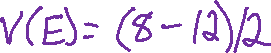 V(E) = (8-12)/2